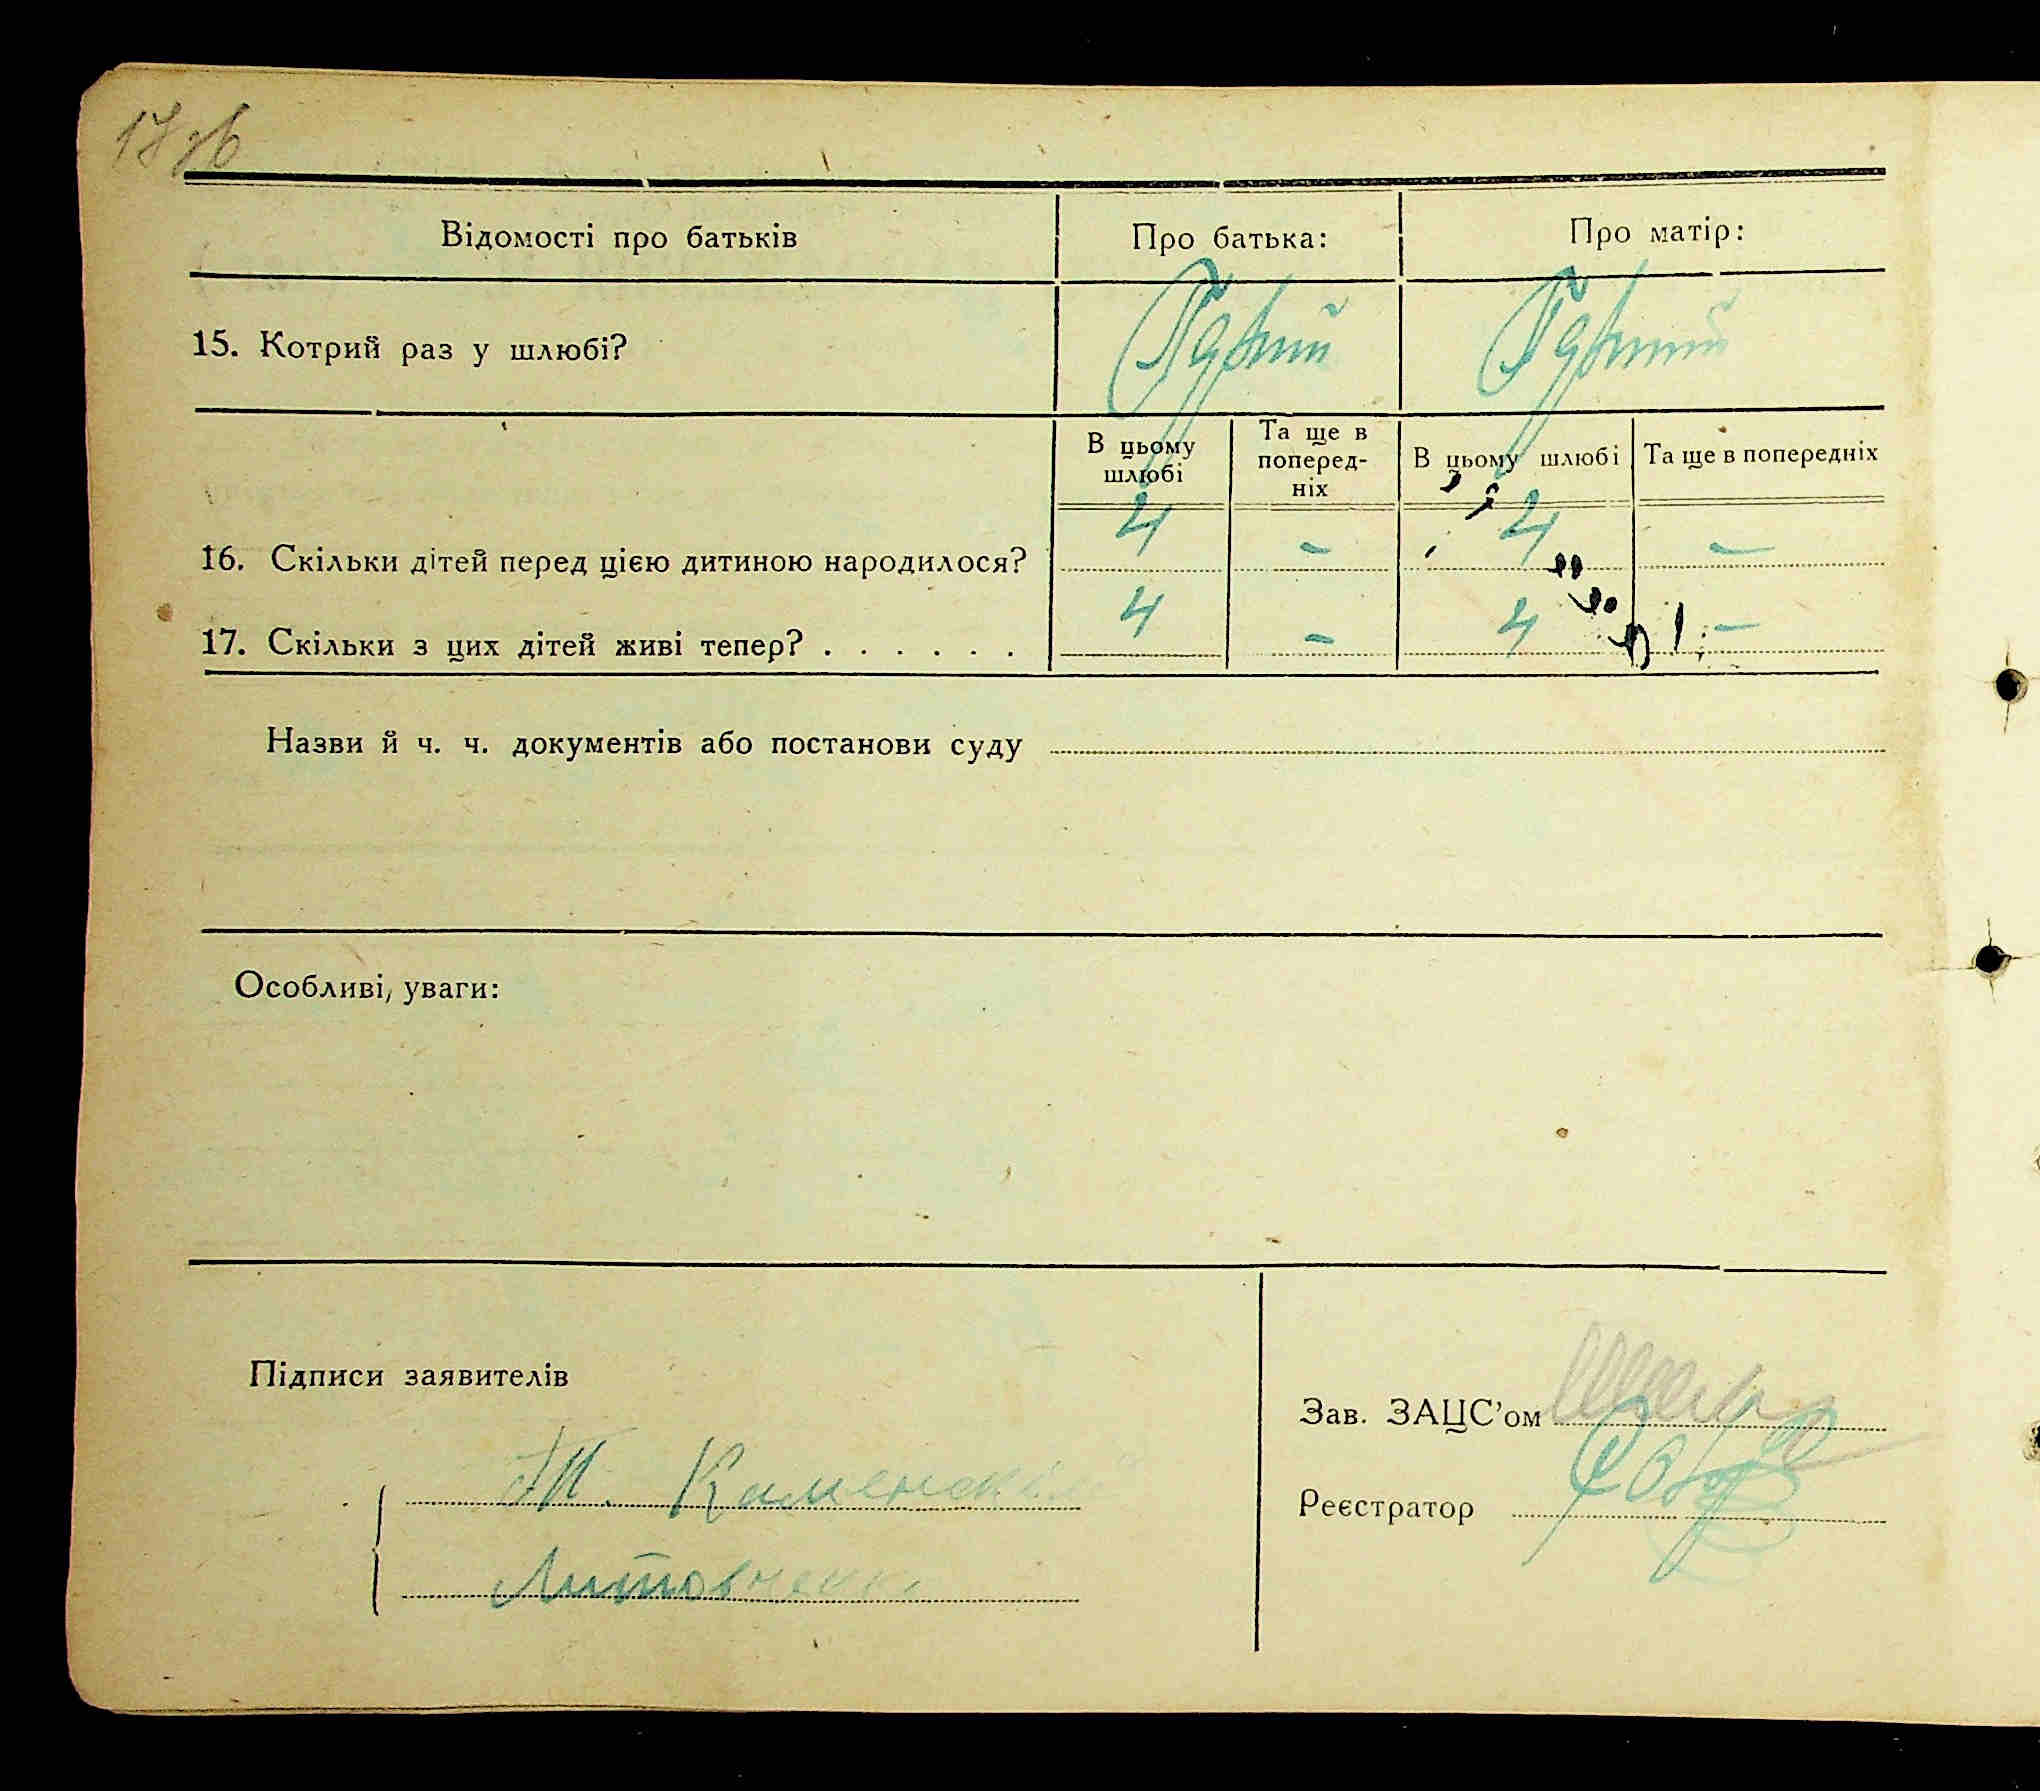 17зв
Відомості про батьків
Про батька:
Про матір:
15. Котрий раз у шлюбі?
В цьому шлюбі
Та ще в поперед-
ніх
В цьому шлюбі
Та ще в попередніх
16. Скільки дітей перед цією дитиною народилося?
4
-
4
-
17. Скільки з цих дітей живі тепер? . . . . . .
4
-
4
-
Назви й ч. ч. документів або постанови суду
Особливі, уваги:
Підписи заявителів
Каменский
Литовченко
Зав. ЗАЦС'ом
Реєстратор